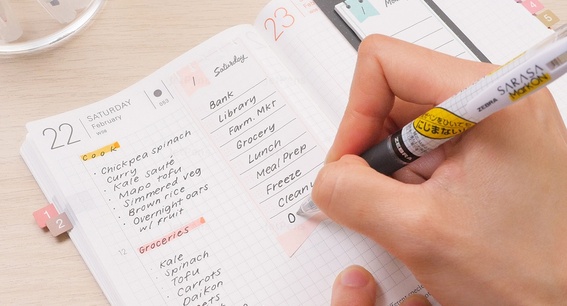 22
SATURDAY
February
053
1
Saturday
23
Cook
· Chickpea spinach
Curry
· Kale sauté
· Mapo tofu
· Simmered veg
· Brown rice
· Overnight oats
w/ fruit
12
Groceries
Kale
Spinach
Tofu
Carrots
Daikon
Bank
Library
Farm. Mkt
Grocery
Lunch
Meal Prep
Freeze
Clean
1
2
4
5
にじまない
ZEBRA
ZEBRA SARASA